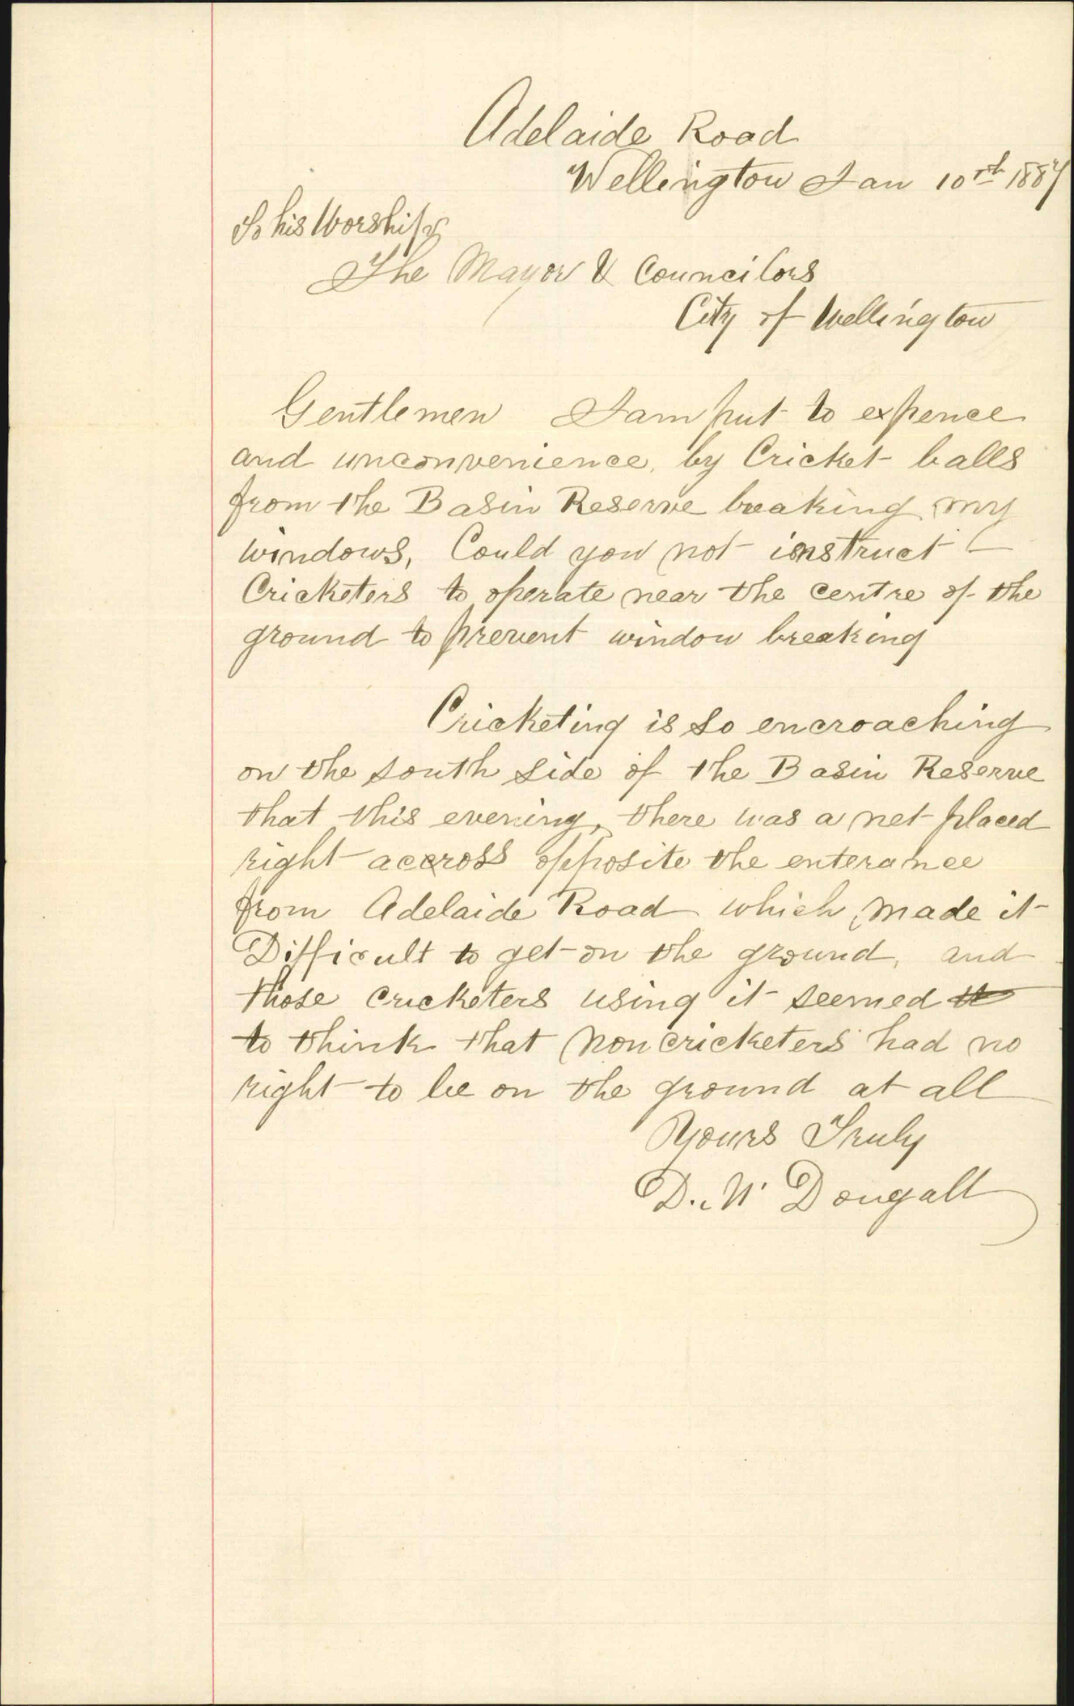 Adelaide Road
Wellington Jan 10th 1887
To his Worship
The Mayor & Councilors
City of Wellington
Gentlemen I am put to expence
and unconvenience, by Cricket balls
from the Basin Reserve breaking my
windows, Could you not instruct
Cricketers to operate near the centre of the
ground to prevent window breaking
Cricketing is so encroaching
on the south side of the Basin Reserve
that this evening, there was a net placed
right accross opposite the enterance
from Adelaide Road which made it
Difficult to get on the ground, and
those cricketers using it seemed
to think that non cricketers had no
right to be on the ground at all
Yours Truly
D. Mc Dougall